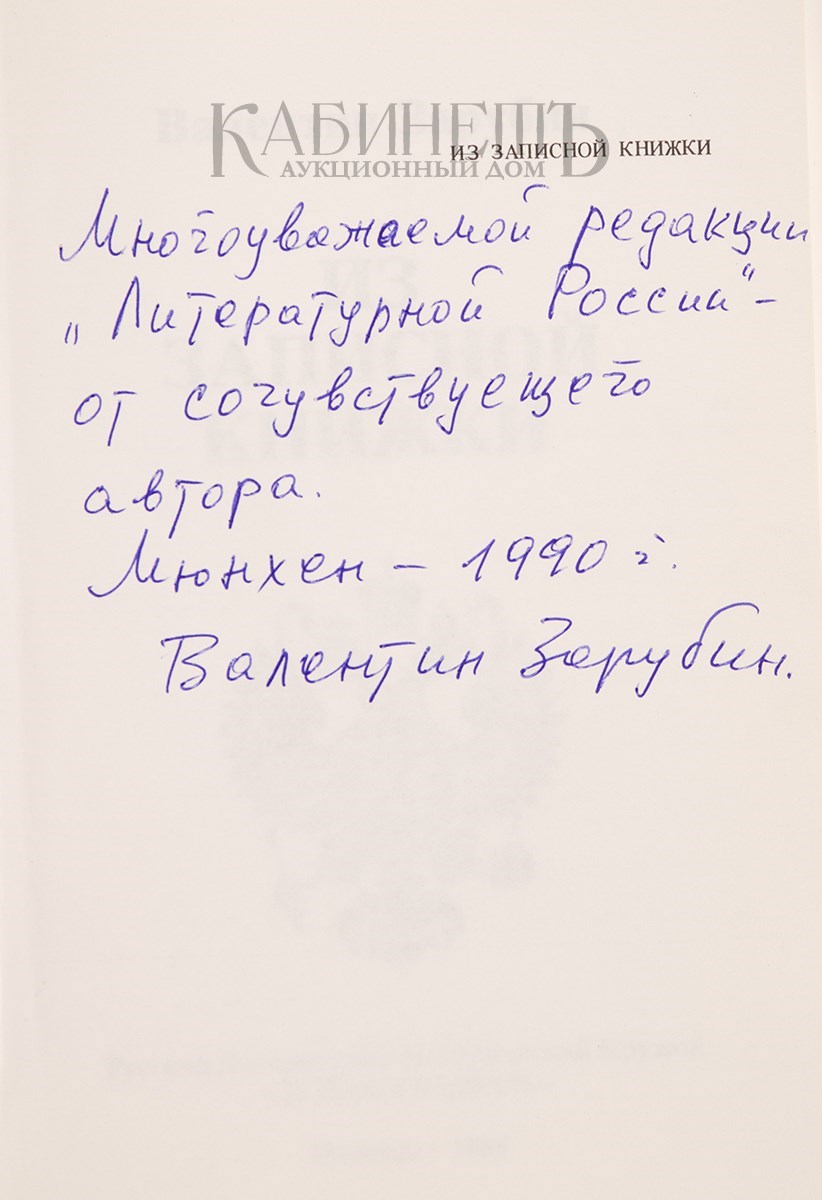 КАБИНЕТЪ
АУКЦИОННЫЙ ДОМ
ИЗ ЗАПИСНОЙ КНИЖКИ
Многоуважаемой редакции
„Литературной России“ –
от сочувствуещего
автора.
Мюнхен – 1990 г.
Валентин Зарубин.
ИЗ
ЗАПИСНОЙ
КНИЖКИ